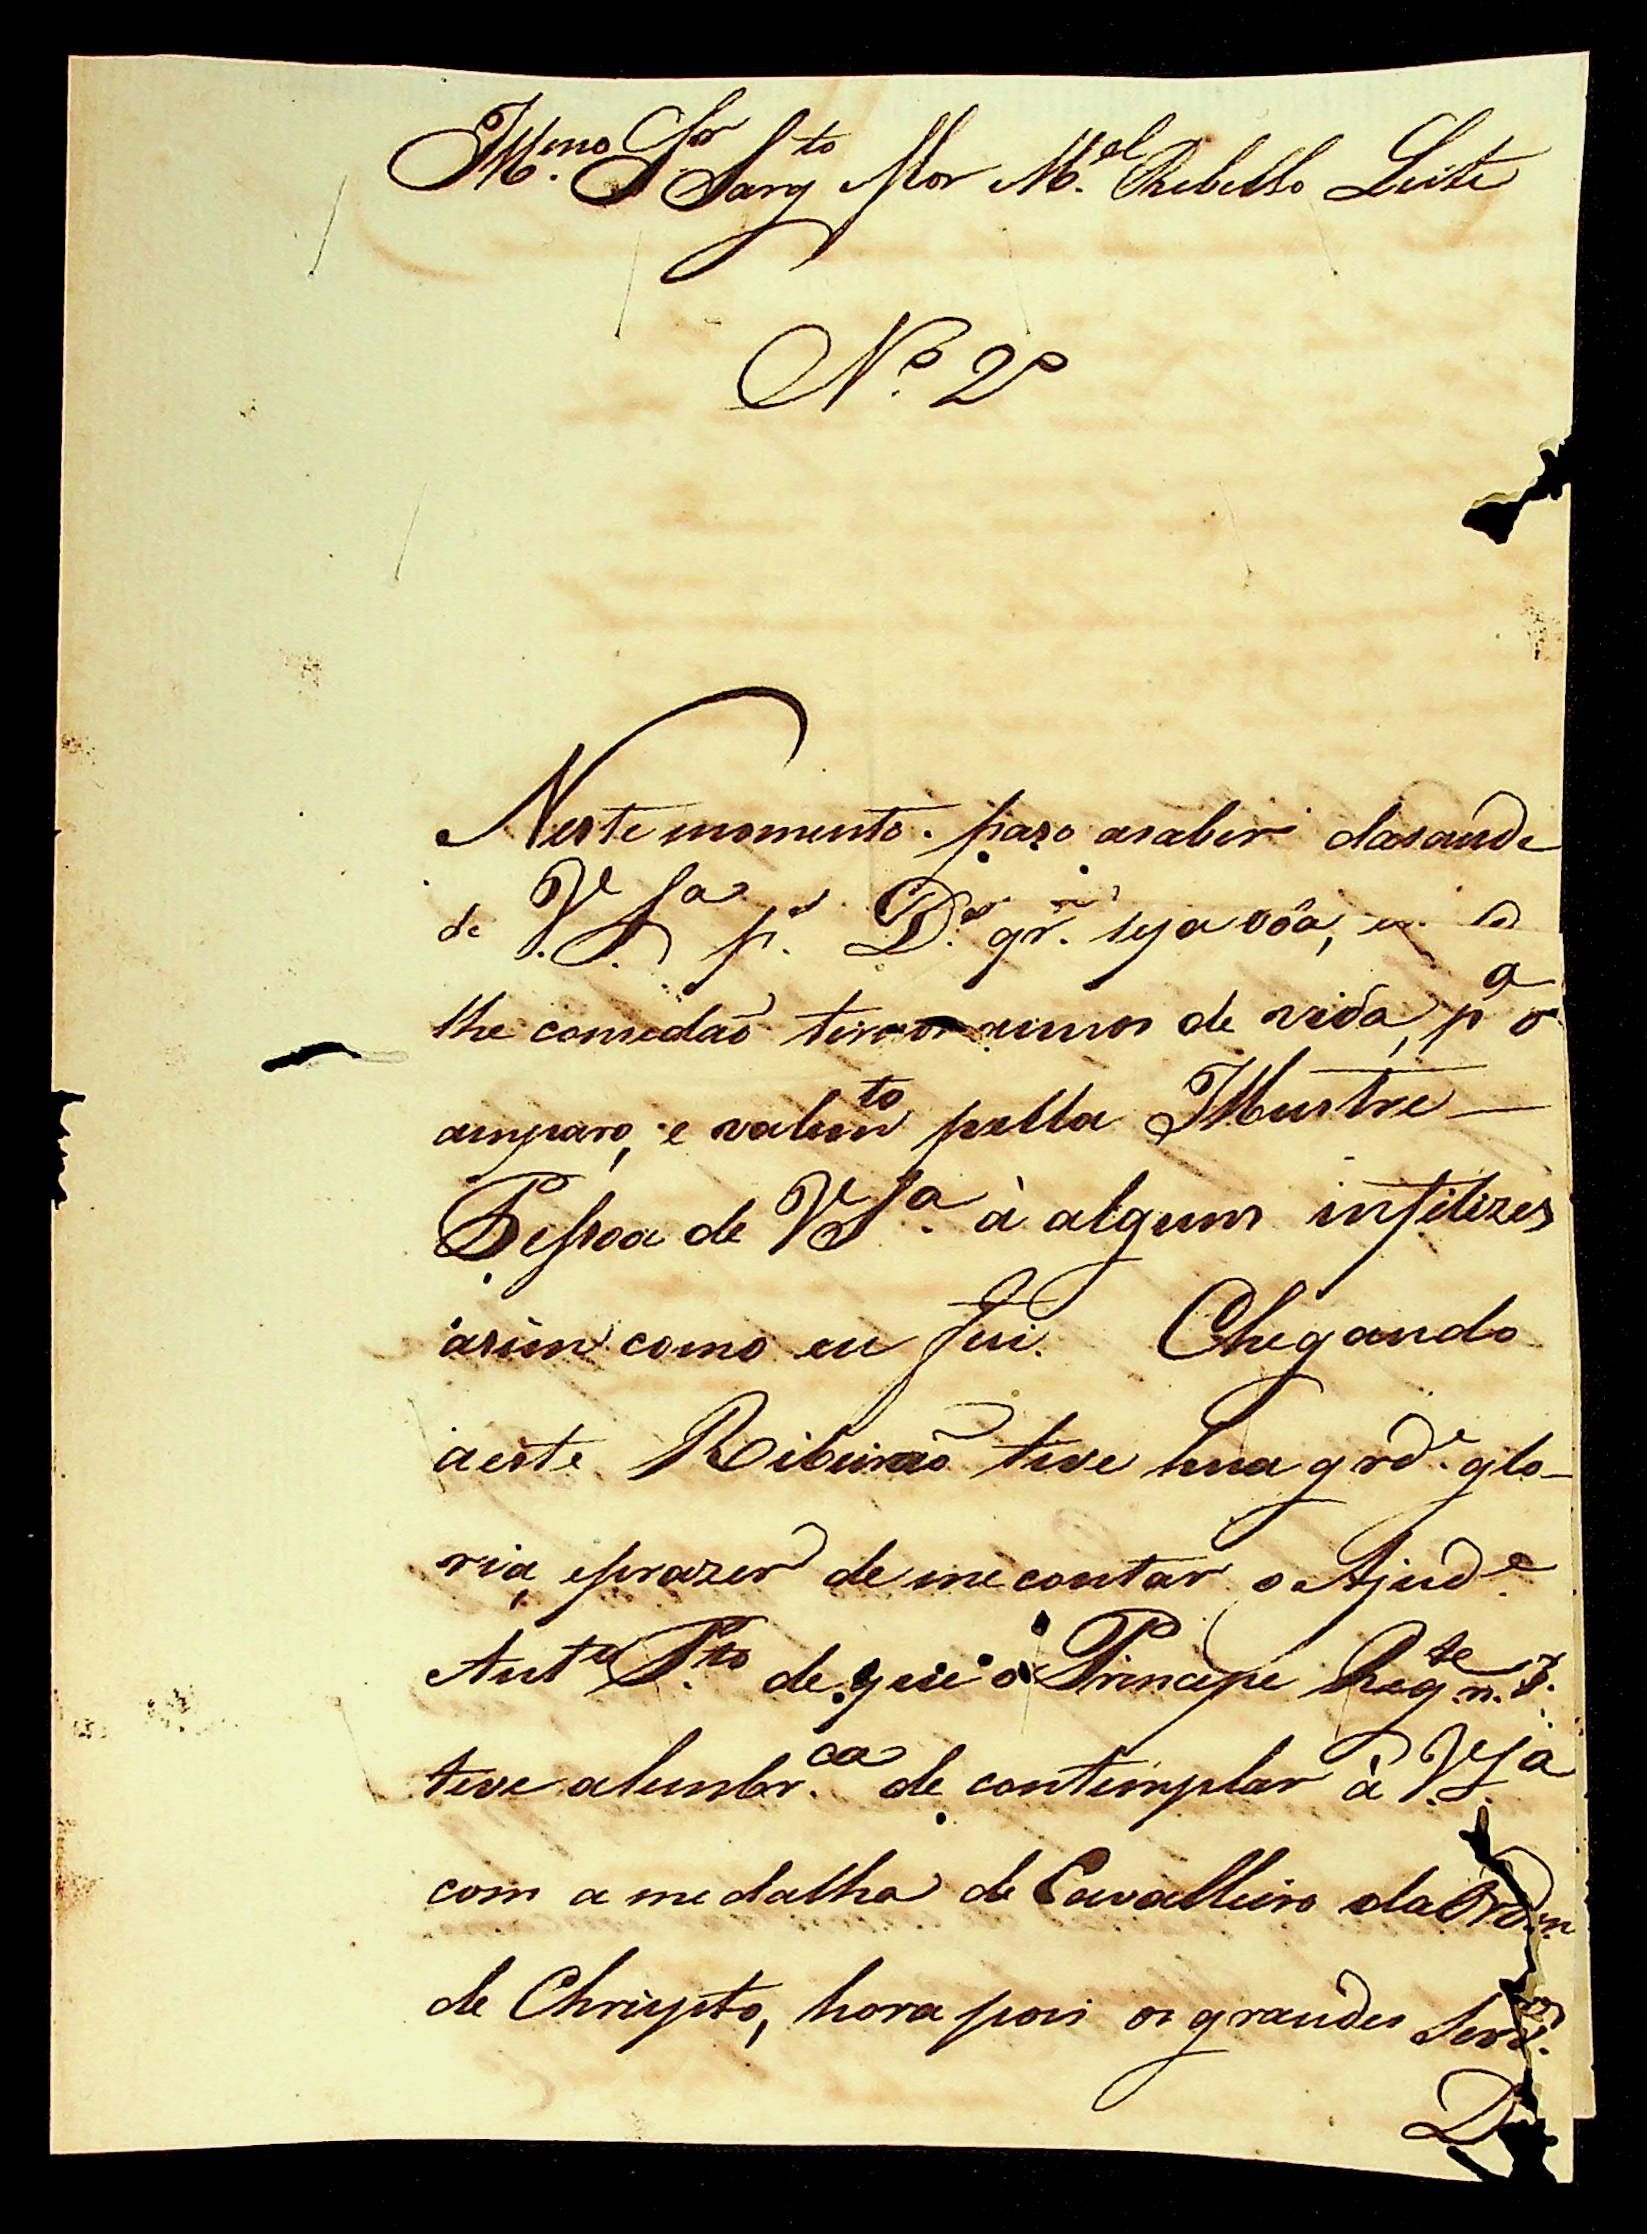 Illmo Snr Sargto Mor Mel Rebello Leite
No 2o
Neste momento paso asaber dasaude
de V. Sa pa Ds gr. seja bôa, e
lhe consedaõ annos de vida, pa o
amparo, e valimto pella Illustre
Pessoa de VSa à alguns infelizes
asim como eu fui. Chegando
aeste Ribeiraõ tive hua grde glo-
ria, eprazer de me contar o Ajude
Anto Pto de que o Principe Regte n. S.
teve alembrca de contemplar à V. Sa
com a medalha de Cavalleiro da Ordem
de Christo, hora pois os grandes Serv.
D